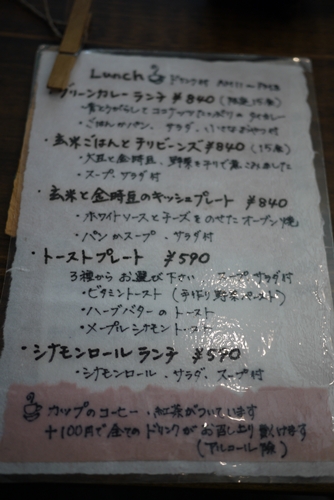 Lunch ドリンク付 AM11〜PM3
グリーンカレー ランチ ¥840 (限定15食)
・ココナッツ タイカレー
・ごはんかパン、サラダ、
・玄米ごはんとチリビーンズ ¥840 (15食)
・大豆と金時豆、野菜をチリで煮こみました
・スープ、サラダ付
・玄米と金時豆のキッシュプレート ¥840
・ホワイトソースとチーズをのせたオーブン焼
・パンかスープ、サラダ付
・トーストプレート ¥590
3種からお選び下さい スープ、サラダ付
・ビタミントースト (手作り野菜ペースト)
・ハーブバターのトースト
・メープルシナモントースト
・シナモンロール ランチ ¥590
・シナモンロール、サラダ、スープ付
カップのコーヒー・紅茶がついています
+100円で全てのドリンクがお召し上り頂けます
(アルコール除)